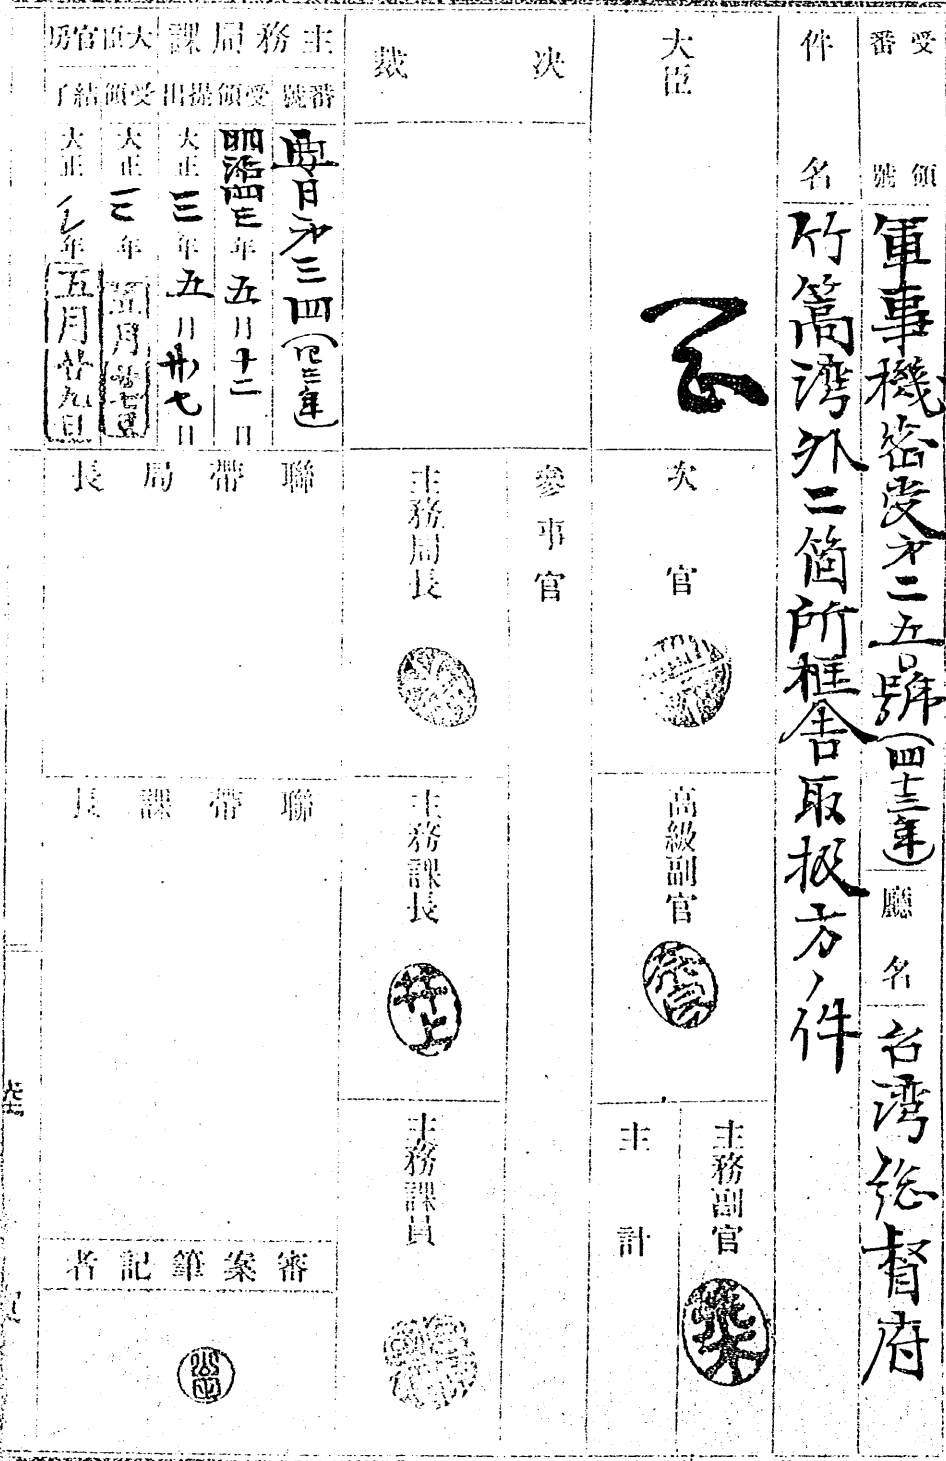 受領番號
軍事機密受第二五號(四十三年)
廳名
台湾総督府
件名
竹篙湾外二箇所框舎取扱方ノ件
大臣
次官
高級副官
主務副官
主計
決裁
參事官
主務局長
主務課長
井上
主務課員
主務局課
番號
第三四(四三年)
受領
明治四三年五月十二日
提出
大正三年五月廿七日
大臣官房
受領
大正三年五月廿七日
結了
大正 年五月廿九日
聯帶局長
聯帶課長
審案筆記者
陸